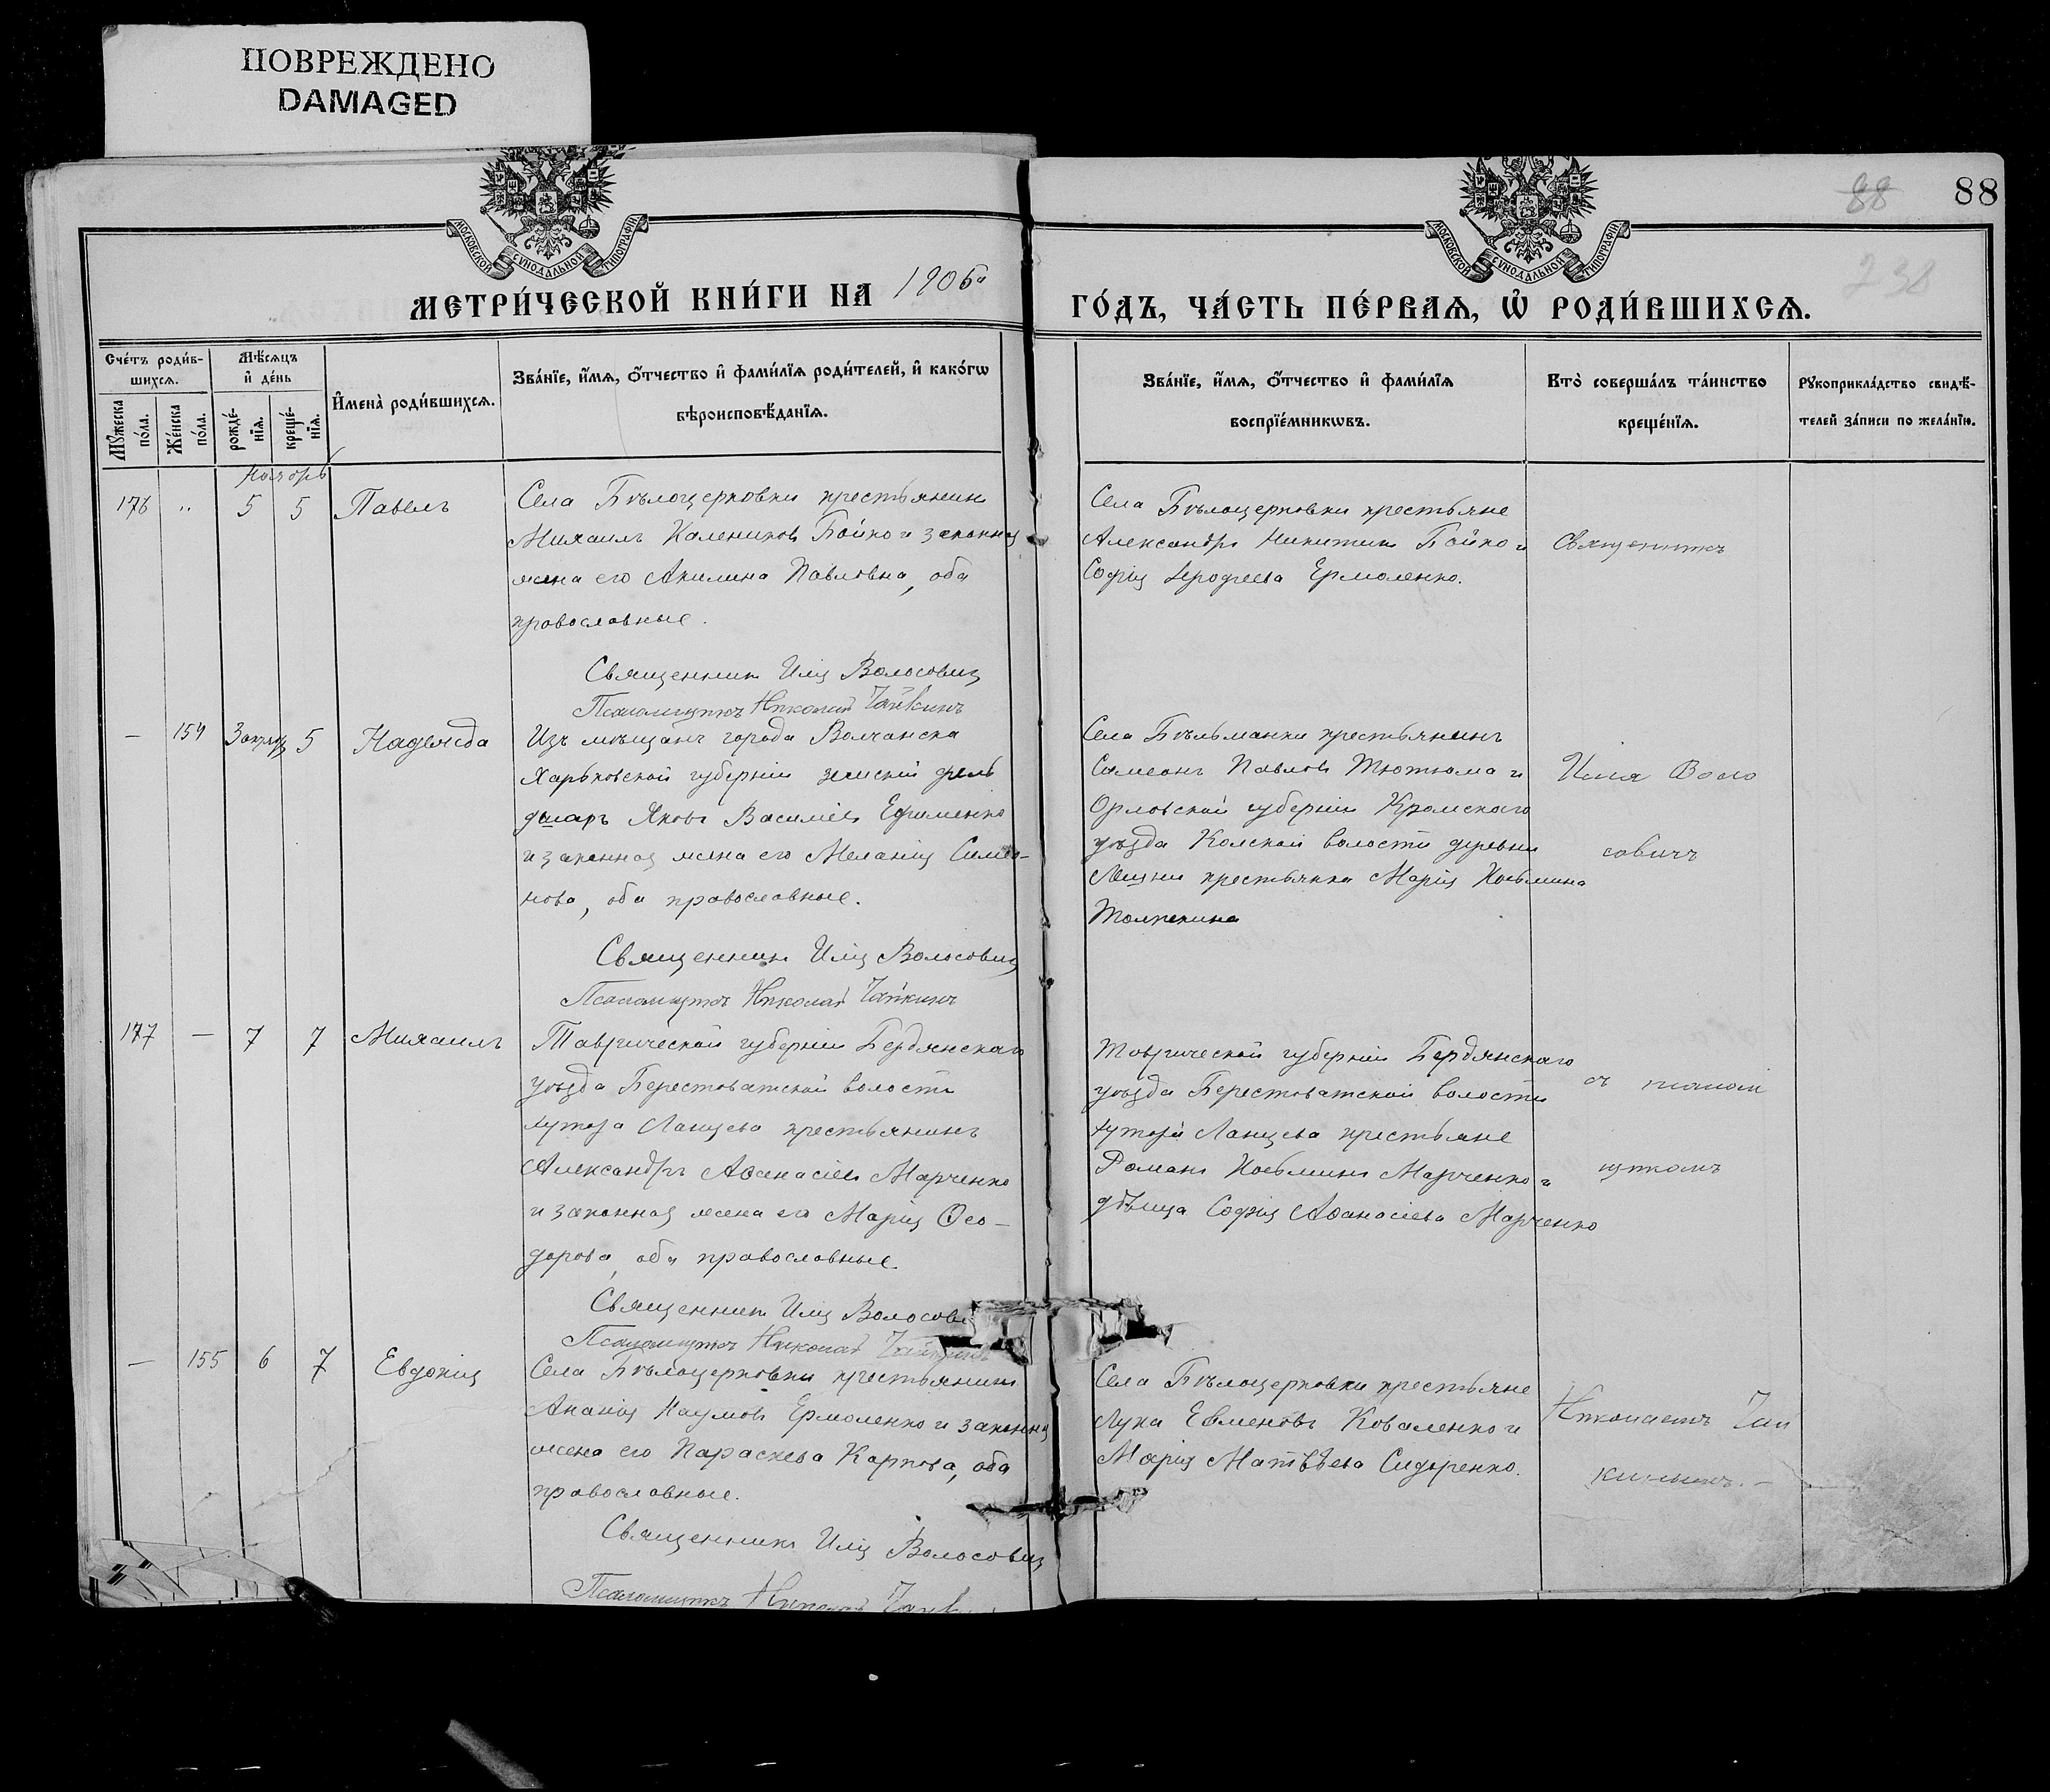 ПОВРЕЖДЕНО
DAMAGED
88
88
238
МОСКОВСКОЙ СУНОДАЛЬНОЙ ТИПОГРАФІИ
МОСКОВСКОЙ СУНОДАЛЬНОЙ ТИПОГРАФІИ
МЕТРИ́ЧЕСКОЙ КНИ́ГИ НА 1906й
ГО́ДЪ, ЧА́СТЬ ПЕ́РВАѦ, Ѡ҆ РОДИ́ВШИХСѦ.
Сче́тъ роди́в-
шихсѧ.
Мꙋ́жеска по́ла.
Же́нска по́ла.
Мѣ́сѧцъ
и҆ де́нь
рожде́-
нїѧ.
креще́-
нїѧ.
И҆мена̀ роди́вшихсѧ.
Зва́нїе, и҆́мѧ, ѻ҆́тчество и҆ фами́лїѧ роди́телей, и҆ како́гѡ
вѣроисповѣ́данїѧ.
Зва́нїе, и҆́мѧ, ѻ҆́тчество и҆ фами́лїѧ
воспрїе́мникѡвъ.
Кто̀ соверша́лъ та́инство
креще́нїѧ.
Рꙋкоприкла́дство свидѣ́-
телей за́писи по жела́нїю.
Ноябрь
176 " 5 5 Павелъ
Села Бѣлоцерковки крестьянинъ
Михаилъ Калениковъ Бойко и законная
жена его Акилина Павловна, оба
православные.
Священникъ Илія Волосовичъ
Псаломщикъ Николай Чайкинъ
Села Бѣлоцерковки крестьяне
Александръ Никитинъ Бойко и
Софія Ермоленко.
Священникъ
— 154 3 октяб 5 Надежда
Изъ мѣщанъ города Волчанска
Харьковской губерніи земскій фель
дшаръ Яковъ Василіевъ Ефименко
и законная жена его Меланія Симео-
нова, оба православные.
Священникъ Илія Волосовичъ
Псаломщикъ Николай Чайкинъ
Села Бѣльманки крестьянинъ
Симеонъ Павловъ Тютюма и
Орловской губерніи Кромскаго
уѣзда волости деревни
крестьянка Марія Козьмина
Илія Воло
совичъ
177 — 7 7 Михаилъ
Таврической губерніи Бердянскаго
уѣзда Берестоватской волости
хутора Ланцева крестьянинъ
Александръ Аѳанасіевъ Марченко
и законная жена его Марія Ѳео-
дорова, оба православные.
Священникъ Илія Волосов
Псаломщикъ Николай Чайкинъ
Таврической губерніи Бердянскаго
уѣзда Берестоватской волости
хутора Ланцева крестьяне
Романъ Козьминъ Марченко и
дѣвица Софія Аѳанасіева Марченко
съ псалом
щикомъ
— 155 6 7 Евдокія
Села Бѣлоцерковки крестьянинъ
Ананія Наумовъ Ермоленко и законная
жена его Параскева Карпова, оба
православные.
Священникъ Илія Волосовичъ
Псаломщикъ Николай Чайк
Села Бѣлоцерковки крестьяне
Лука Евменовъ Коваленко и
Марія Матвѣева Сидоренко.
Николаемъ Чай
кинымъ.—